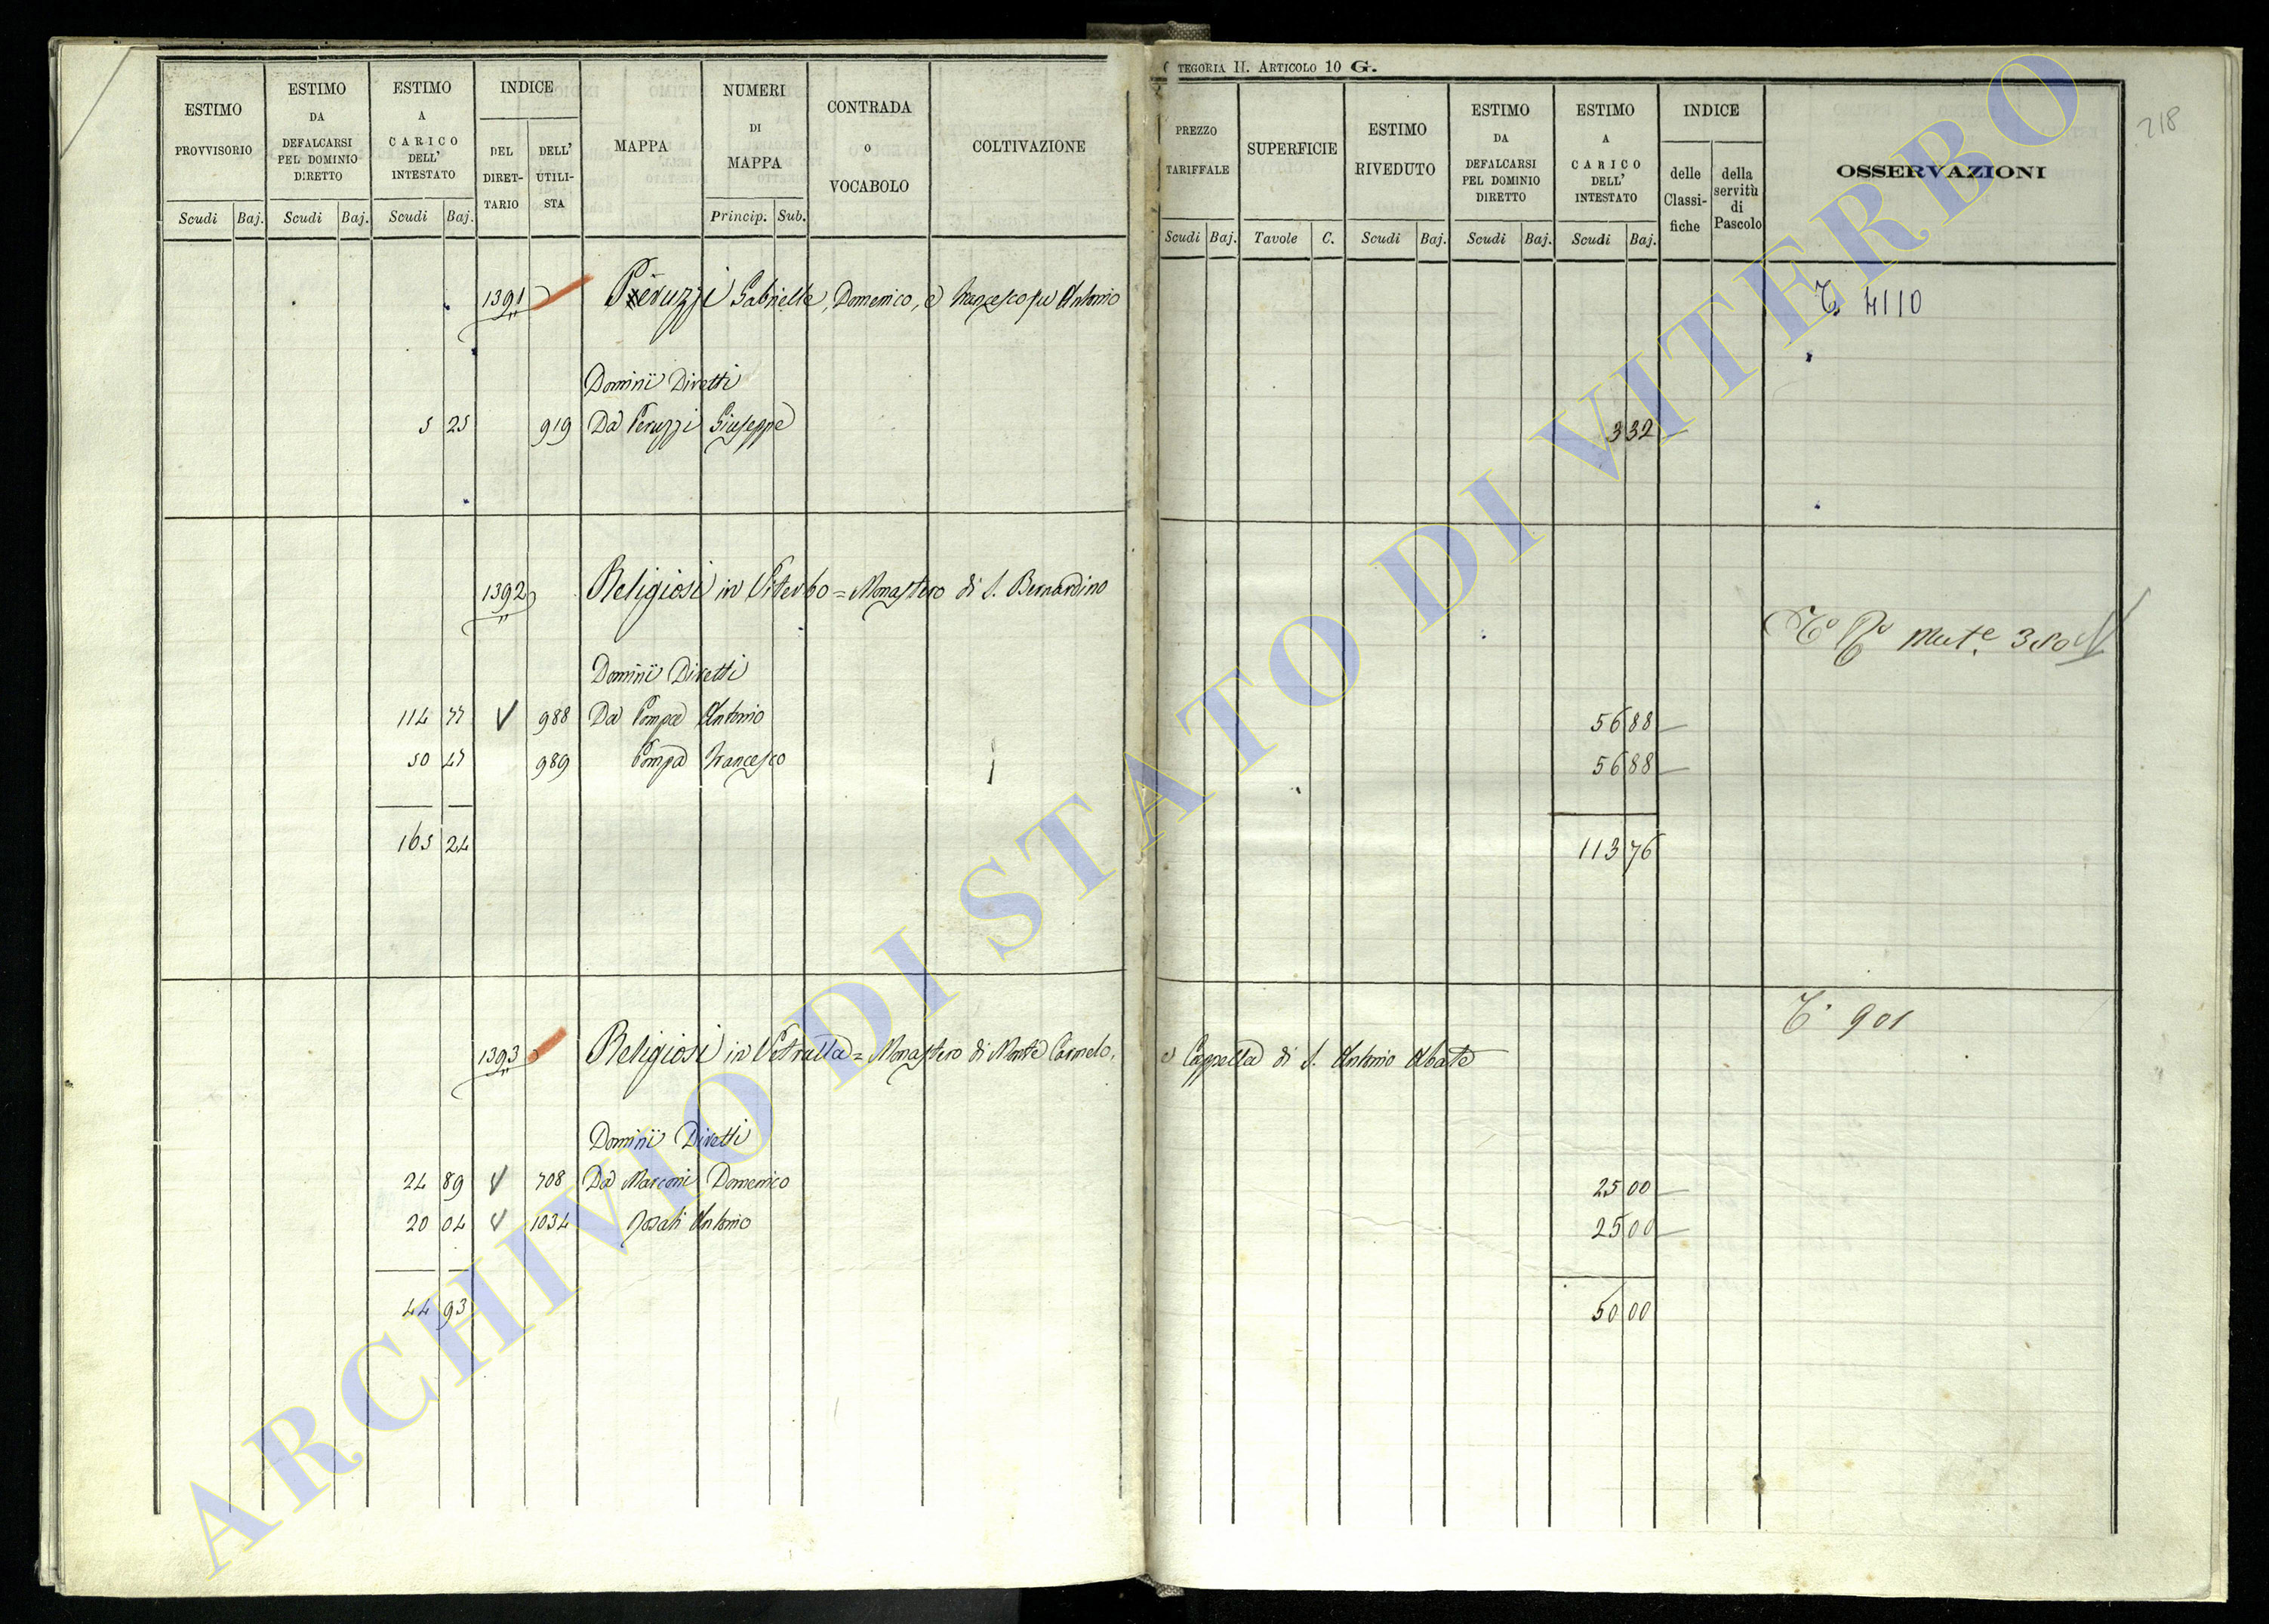 ESTIMO PROVVISORIO
ESTIMO DA DEFALCARSI PEL DOMINIO DIRETTO
ESTIMO A CARICO DELL' INTESTATO
INDICE
DEL DIRET-TARIO
DELL' UTILI-STA
MAPPA
NUMERI DI MAPPA
CONTRADA o VOCABOLO
COLTIVAZIONE
Scudi Baj. Scudi Baj. Scudi Baj. Princip. Sub.
1391 Peruzzi Gabrielle, Domenico, e Francesco fu Antonio
Dominii Diretti
5 25 919 Da Peruzzi Giuseppe
1392 Religiosi in Viterbo = Monastero di S. Bernardino
Dominii Diretti
114 77 V 988 Da Pompa Antonio
50 47 989 Pompa Francesco
165 24
1393 Religiosi in Vetralla = Monastero di Monte Carmelo,
Dominii Diretti
24 89 V 708 Da Marconi Domenico
20 04 V 1034 Rosati Antonio
44 93
TEGORIA II. ARTICOLO 10 G.
218
PREZZO TARIFFALE
SUPERFICIE
ESTIMO RIVEDUTO
ESTIMO DA DEFALCARSI PEL DOMINIO DIRETTO
ESTIMO A CARICO DELL' INTESTATO
INDICE
delle Classi-fiche
della servitù di Pascolo
OSSERVAZIONI
Scudi Baj. Tavole C. Scudi Baj. Scudi Baj. Scudi Baj.
T. 4110
3 32
Mut.e
56 88
56 88
113 76
T. 901
e Cappella di S. Antonio Abate
25 00
25 00
50 00
ARCHIVIO DI STATO DI VITERBO